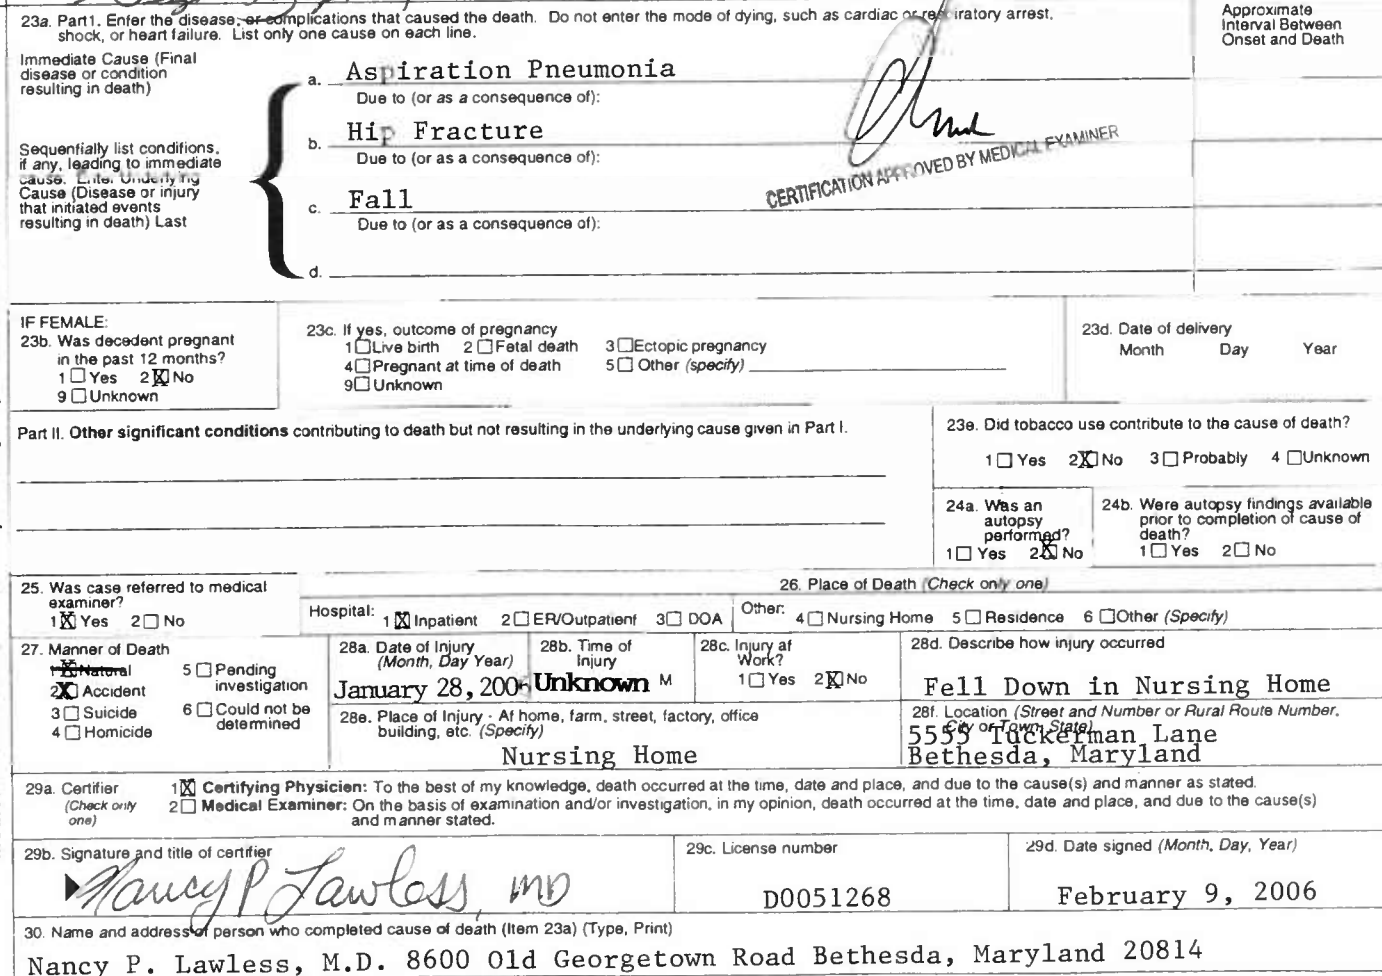 23a. Part1. Enter the disease, or complications that caused the death. Do not enter the mode of dying, such as cardiac or respiratory arrest,
shock, or heart failure. List only one cause on each line.
Approximate
Interval Between
Onset and Death
Immediate Cause (Final
disease or condition
resulting in death)
a. Aspiration Pneumonia
Due to (or as a consequence of):
b. Hip Fracture
Due to (or as a consequence of):
Sequentially list conditions,
if any, leading to immediate
cause. Enter Underlying
Cause (Disease or injury
that initiated events
resulting in death) Last
c. Fall
Due to (or as a consequence of):
d.
CERTIFICATION APPROVED BY MEDICAL EXAMINER
IF FEMALE:
23b. Was decedent pregnant
in the past 12 months?
1 ☐ Yes 2 ☒ No
9 ☐ Unknown
23c. If yes, outcome of pregnancy
1 ☐ Live birth 2 ☐ Fetal death 3 ☐ Ectopic pregnancy
4 ☐ Pregnant at time of death 5 ☐ Other (specify)
9 ☐ Unknown
23d. Date of delivery
Month Day Year
Part II. Other significant conditions contributing to death but not resulting in the underlying cause given in Part I.
23e. Did tobacco use contribute to the cause of death?
1 ☐ Yes 2 ☒ No 3 ☐ Probably 4 ☐ Unknown
24a. Was an
autopsy
performed?
1 ☐ Yes 2 ☒ No
24b. Were autopsy findings available
prior to completion of cause of
death?
1 ☐ Yes 2 ☐ No
25. Was case referred to medical
examiner?
1 ☒ Yes 2 ☐ No
26. Place of Death (Check only one)
Hospital: 1 ☒ Inpatient 2 ☐ ER/Outpatient 3 ☐ DOA Other: 4 ☐ Nursing Home 5 ☐ Residence 6 ☐ Other (Specify)
27. Manner of Death
1 ☒ Natural
2 ☒ Accident
3 ☐ Suicide
4 ☐ Homicide
5 ☐ Pending
investigation
6 ☐ Could not be
determined
28a. Date of Injury
(Month, Day Year)
January 28, 2006
28b. Time of
Injury
Unknown M
28c. Injury at
Work?
1 ☐ Yes 2 ☒ No
28d. Describe how injury occurred
Fell Down in Nursing Home
28e. Place of Injury - At home, farm, street, factory, office
building, etc. (Specify)
Nursing Home
28f. Location (Street and Number or Rural Route Number,
City or Town, State)
5555 Tuckerman Lane
Bethesda, Maryland
29a. Certifier
(Check only
one)
1 ☒ Certifying Physicien: To the best of my knowledge, death occurred at the time, date and place, and due to the cause(s) and manner as stated.
2 ☐ Medical Examiner: On the basis of examination and/or investigation, in my opinion, death occurred at the time, date and place, and due to the cause(s)
and manner stated.
29b. Signature and title of certifier
Nancy P Lawless, MD
29c. License number
D0051268
29d. Date signed (Month, Day, Year)
February 9, 2006
30. Name and address of person who completed cause of death (Item 23a) (Type, Print)
Nancy P. Lawless, M.D. 8600 Old Georgetown Road Bethesda, Maryland 20814